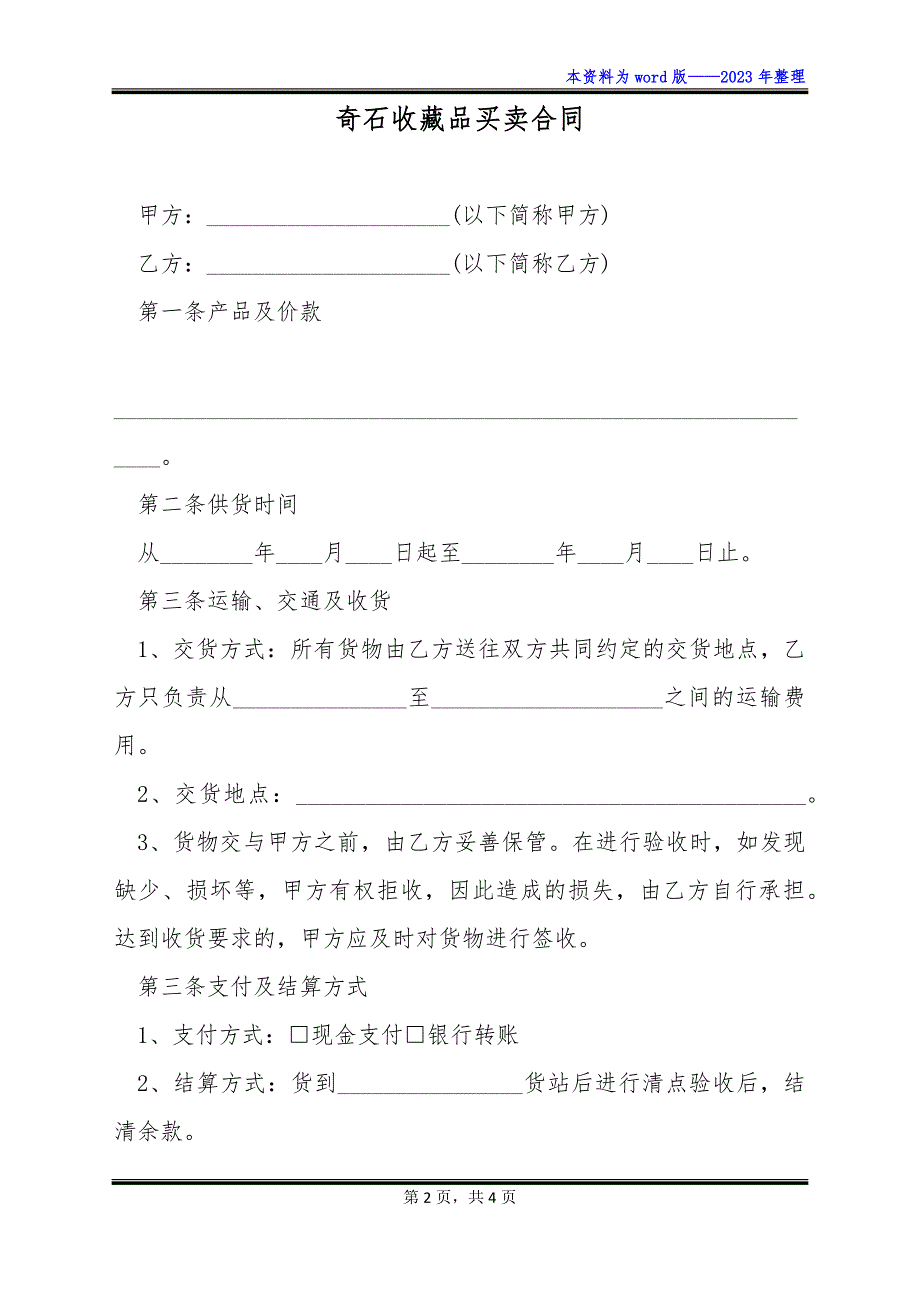 本资料为 word 版——2023 年整理
奇石收藏品买卖合同
甲方：_____________________(以下简称甲方)
乙方：_____________________(以下简称乙方)
第一条产品及价款
___________________________________________________________
____。
第二条供货时间
从________年____月____日起至________年____月____日止。
第三条运输、交通及收货
1、交货方式：所有货物由乙方送往双方共同约定的交货地点，乙
方只负责从_______________至____________________之间的运输费
用。
2、交货地点：____________________________________________。
3、货物交与甲方之前，由乙方妥善保管。在进行验收时，如发现
缺少、损坏等，甲方有权拒收，因此造成的损失，由乙方自行承担。
达到收货要求的，甲方应及时对货物进行签收。
第三条支付及结算方式
1、支付方式：□现金支付□银行转账
2、结算方式：货到________________货站后进行清点验收后，结
清余款。
第 2 页，共 4 页